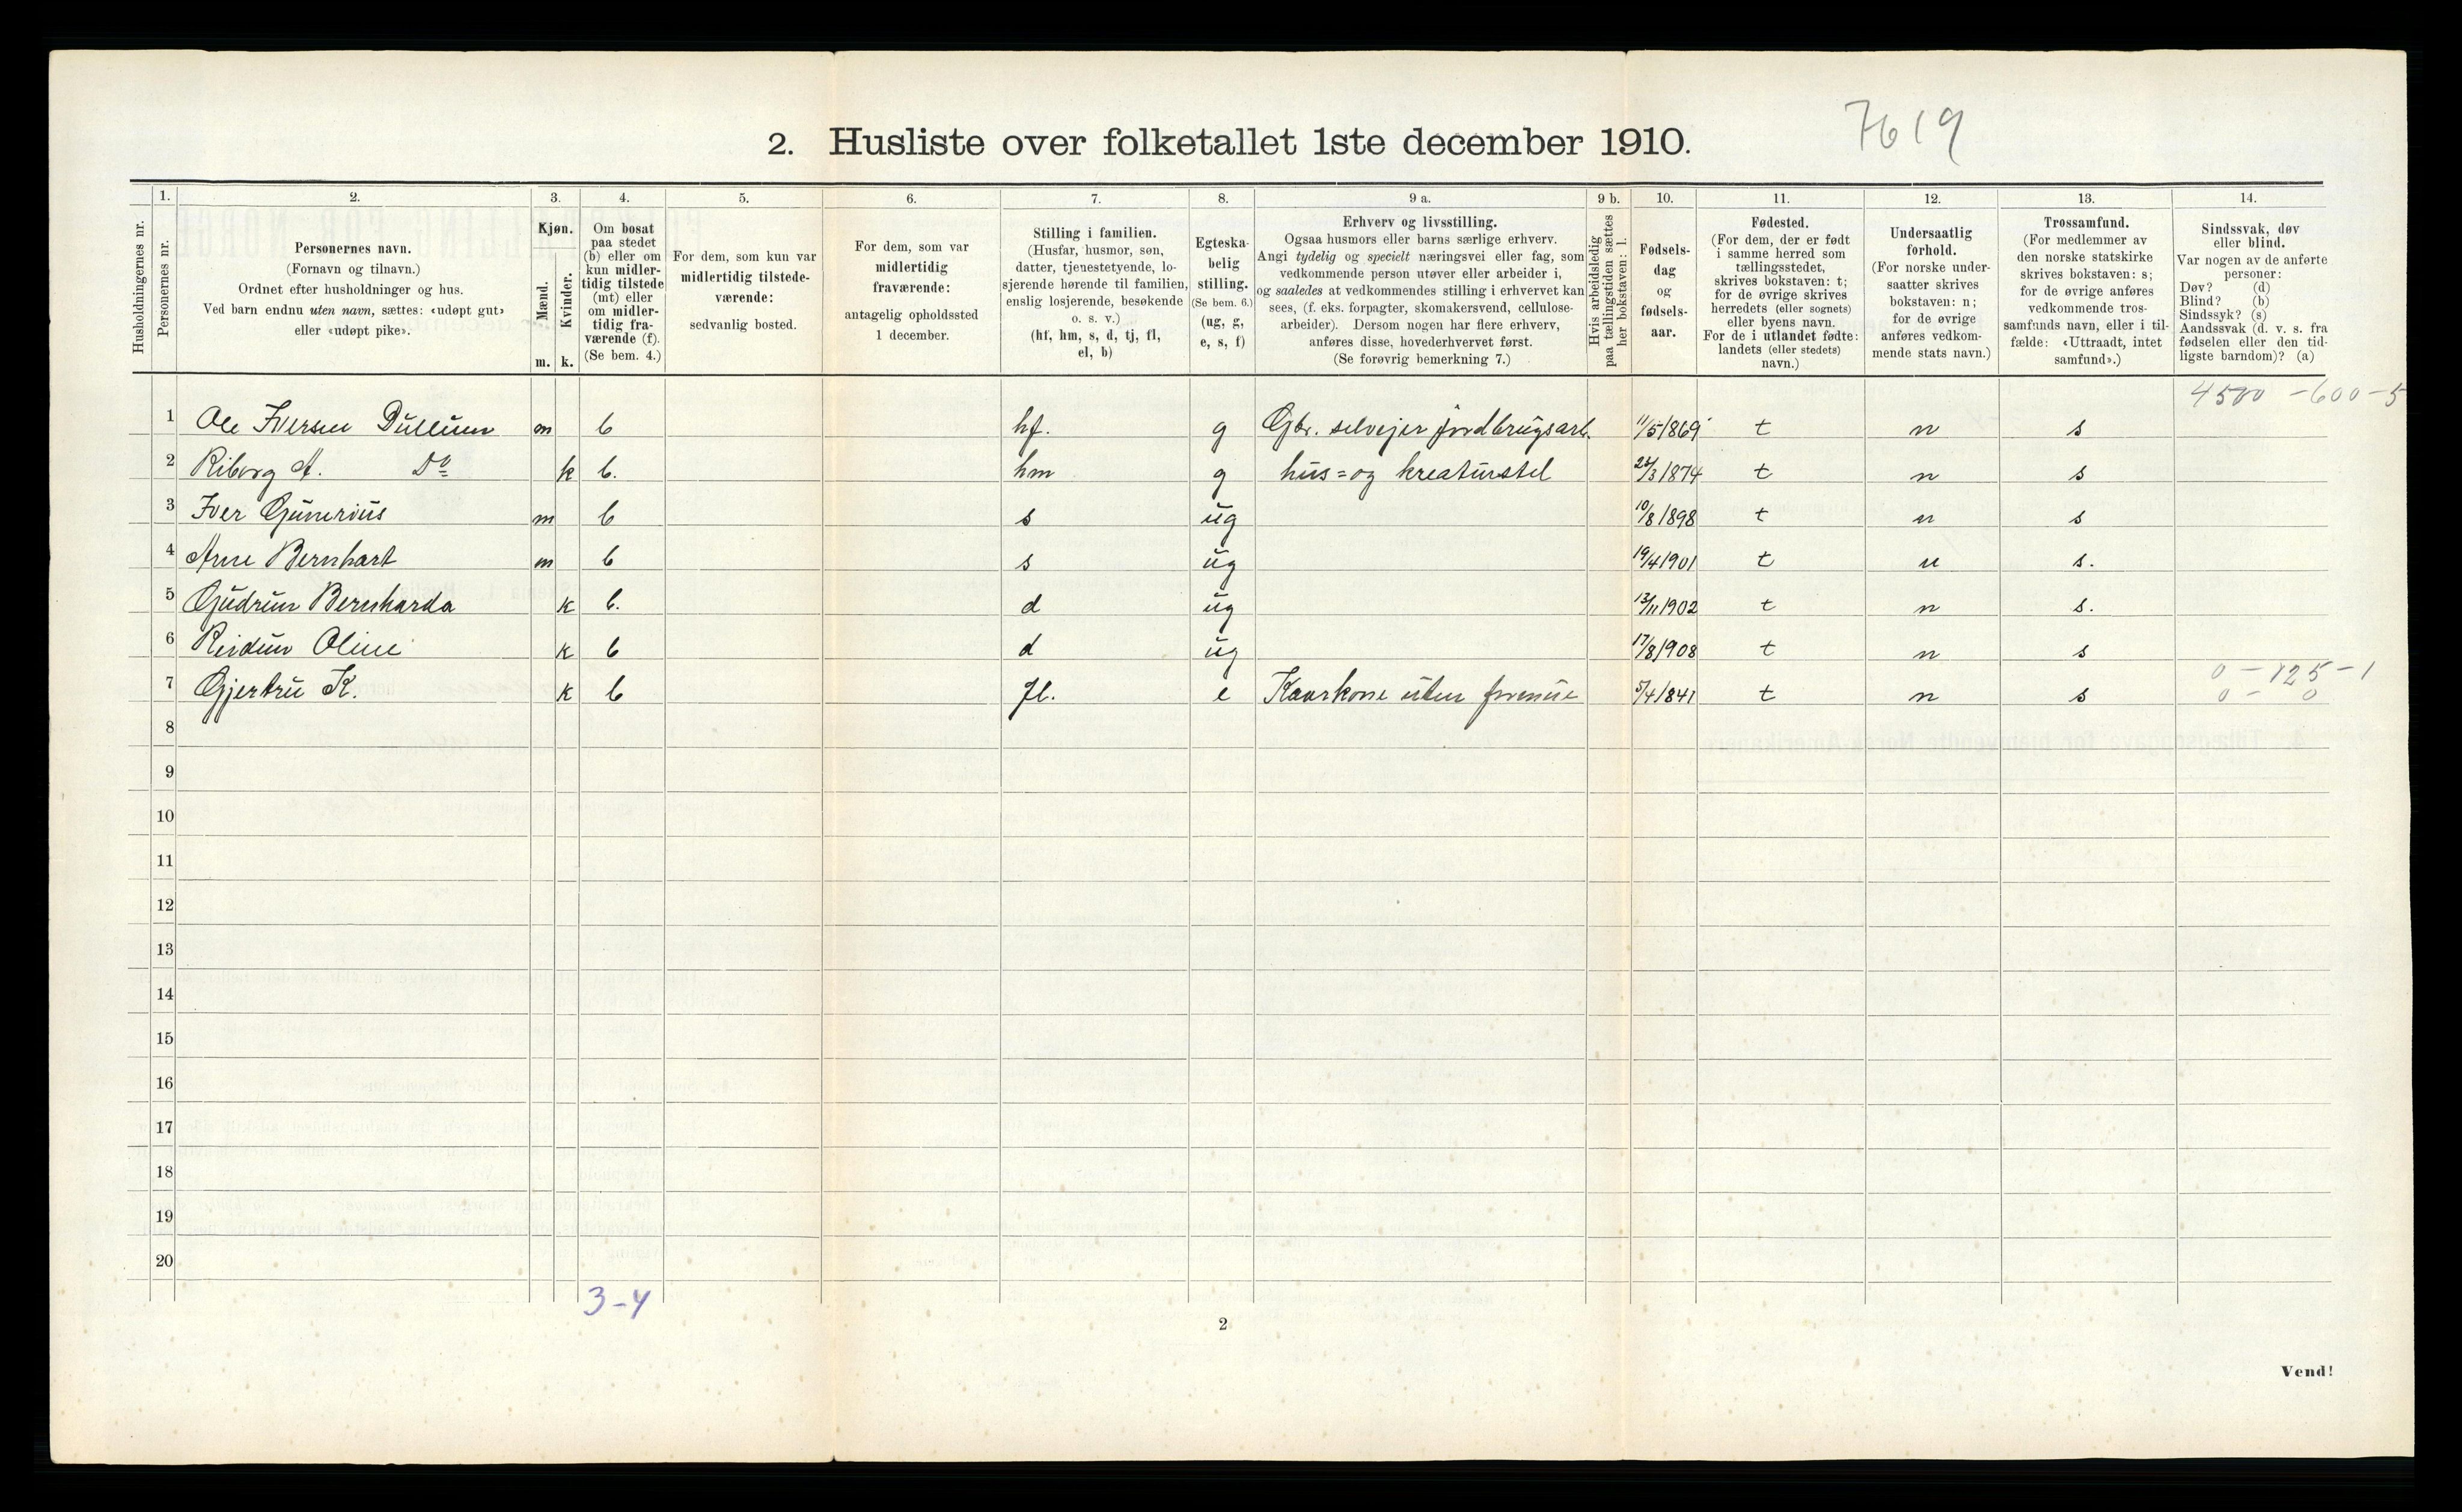 7619
2. Husliste over folketallet 1ste december 1910.
Husholdningernes nr.
1.
Personernes nr.
2.
Personernes navn.
(Fornavn og tilnavn.)
Ordnet efter husholdninger og hus.
Ved barn endnu uten navn, sættes: «udøpt gut»
eller «udøpt pike».
3.
Kjøn.
Mænd.
m.
Kvinder.
k.
4.
Om bosat
paa stedet
(b) eller om
kun midler-
tidig tilstede
(mt) eller
om midler-
tidig fra-
værende (f).
(Se bem. 4.)
5.
For dem, som kun var
midlertidig tilstede-
værende:
sedvanlig bosted.
6.
For dem, som var
midlertidig
fraværende:
antagelig opholdssted
1 december.
7.
Stilling i familien.
(Husfar, husmor, søn,
datter, tjenestetyende, lo-
sjerende hørende til familien,
enslig losjerende, besøkende
o. s. v.)
(hf, hm, s, d, tj, fl,
el, b)
8.
Egteska-
belig
stilling.
(Se bem. 6.)
(ug, g,
e, s, f)
9 a.
Erhverv og livsstilling.
Ogsaa husmors eller barns særlige erhverv.
Angi tydelig og specielt næringsvei eller fag, som
vedkommende person utøver eller arbeider i,
og saaledes at vedkommendes stilling i erhvervet kan
sees, (f. eks. forpagter, skomakersvend, cellulose-
arbeider). Dersom nogen har flere erhverv,
anføres disse, hovederhvervet først.
(Se forøvrig bemerkning 7.)
9 b.
Hvis arbeidsledig
paa tællingstiden sættes
her bokstaven: l.
10.
Fødsels-
dag
og
fødsels-
aar.
11.
Fødested.
(For dem, der er født
i samme herred som
tællingsstedet,
skrives bokstaven: t;
for de øvrige skrives
herredets (eller sognets)
eller byens navn.
For de i utlandet fødte:
landets (eller stedets)
navn.)
12.
Undersaatlig
forhold.
(For norske under-
saatter skrives
bokstaven: n;
for de øvrige
anføres vedkom-
mende stats navn.)
13.
Trossamfund.
(For medlemmer av
den norske statskirke
skrives bokstaven: s;
for de øvrige anføres
vedkommende tros-
samfunds navn, eller i til-
fælde: «Uttraadt, intet
samfund».)
14.
Sindssvak, døv
eller blind.
Var nogen av de anførte
personer:
Døv? (d)
Blind? (b)
Sindssyk? (s)
Aandssvak (d. v. s. fra
fødselen eller den tid-
ligste barndom)? (a)
4500 - 600 - 5
1 Ole Iversen Dullum m b hf. g Gbr. selvejer jordbrugsarb. 11/5 1869 t n s
2 Riborg A. Do k b. hm g hus= og kreaturstel 26/3 1874 t n s
3 Iver Gunerius m b s ug 10/8 1898 t n s
4 Arne Bernhart m b s ug 19/4 1901 t n s.
5 Gudrun Bernharda k b. d ug 13/11 1902 t n s.
6 Reidun Oline k b d ug 17/8 1908 t n s
0 - 125 - 1
7 Gjertru K. k b fl. e Kaarkone uten formue 5/4 1841 t n s 0 - 0
8
9
10
11
12
13
14
15
16
17
18
19
20
3-4
2
Vend!